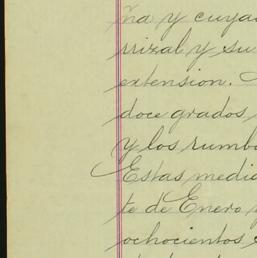 ña y cuya
rrizal y su
extension.
doce grados
y los rumbo
Estas medi
te de Enero
ochocientos